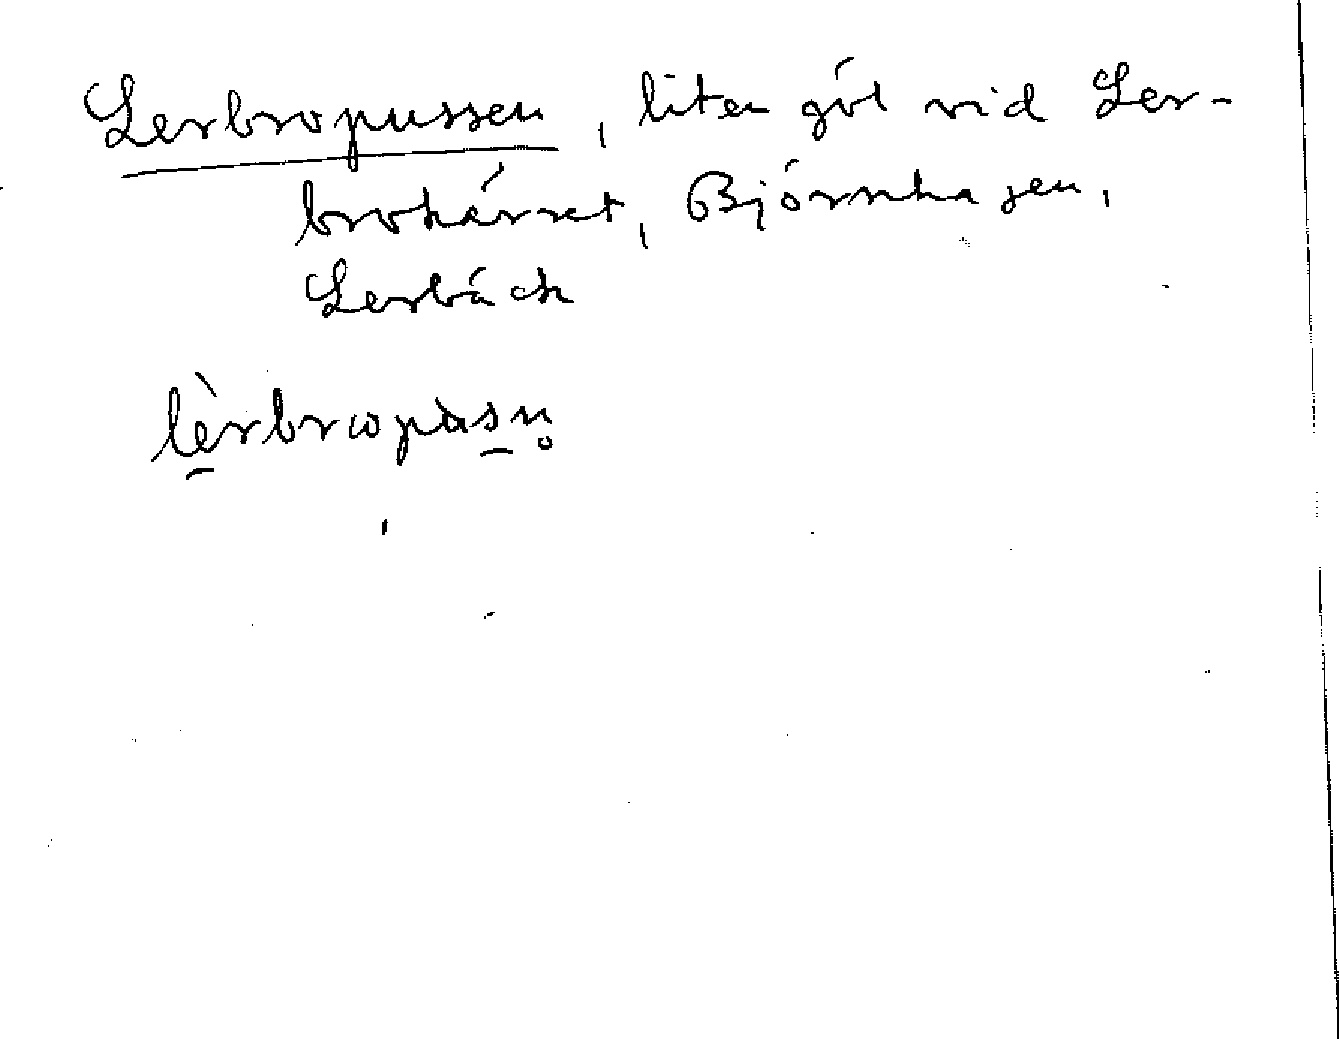 Lerbropussen, liten göl vid Ler-
brokärret, Björnhagen,
Lerbäck
lèrbrωpàsn̥